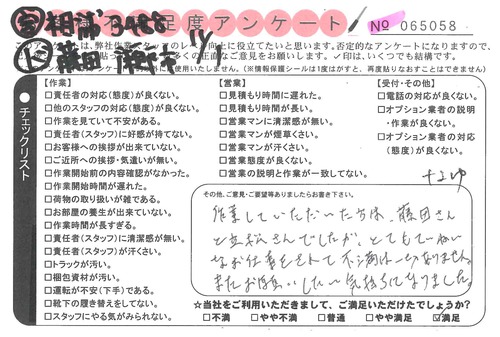 足度アンケート
No 065058
3488
1/1
藤田
このアンケートは、弊社作業スタッフのレベル向上に役立てたいと思います。否定的なアンケートになりますので、
多くの正直なご意見をお願いします。✓印は、いくつでも結構です。
使用いたしません。(※情報保護シールは1度はがすと、再度貼りなおすことはできません)
チェックリスト
【作業】
□責任者の対応(態度)が良くない。
□他のスタッフの対応(態度)が良くない。
□作業を見ていて不安がある。
□責任者(スタッフ)に好感が持てない。
□お客様への挨拶が出来ていない。
□ご近所への挨拶・気遣いが無い。
□作業開始前の内容確認がなかった。
□作業開始時間が遅れた。
□荷物の取り扱いが雑である。
□お部屋の養生が出来ていない。
□作業時間が長すぎる。
□責任者(スタッフ)に清潔感が無い。
□責任者(スタッフ)が汗くさい。
□トラックが汚い。
□梱包資材が汚い。
□運転が不安(下手)である。
□靴下の履き替えをしてない。
□スタッフにやる気がみられない。
【営業】
□見積もり時間に遅れた。
□見積もり時間が長い。
□営業マンに清潔感が無い。
□営業マンが煙草くさい。
□営業マンが汗くさい。
□営業態度が良くない。
□営業の説明と作業が一致してない。
【受付・その他】
□電話の対応が良くない。
□オプション業者の説明
・作業が良くない。
□オプション業者の対応
(態度)が良くない。
その他、ご意見・ご要望等ありましたらお書き下さい。
作業していただいた方は、藤田さん
と立松さんでしたが、とてもていねい
なお仕事をされて不満は一切ありません。
またお願いしたい気持ちになりました。
☆当社をご利用いただきまして、ご満足いただけたでしょうか?
□不満 □やや不満 □普通 □やや満足 ☑満足